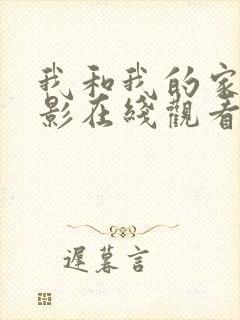 我和我的家
影在綫觀看
遲暮言